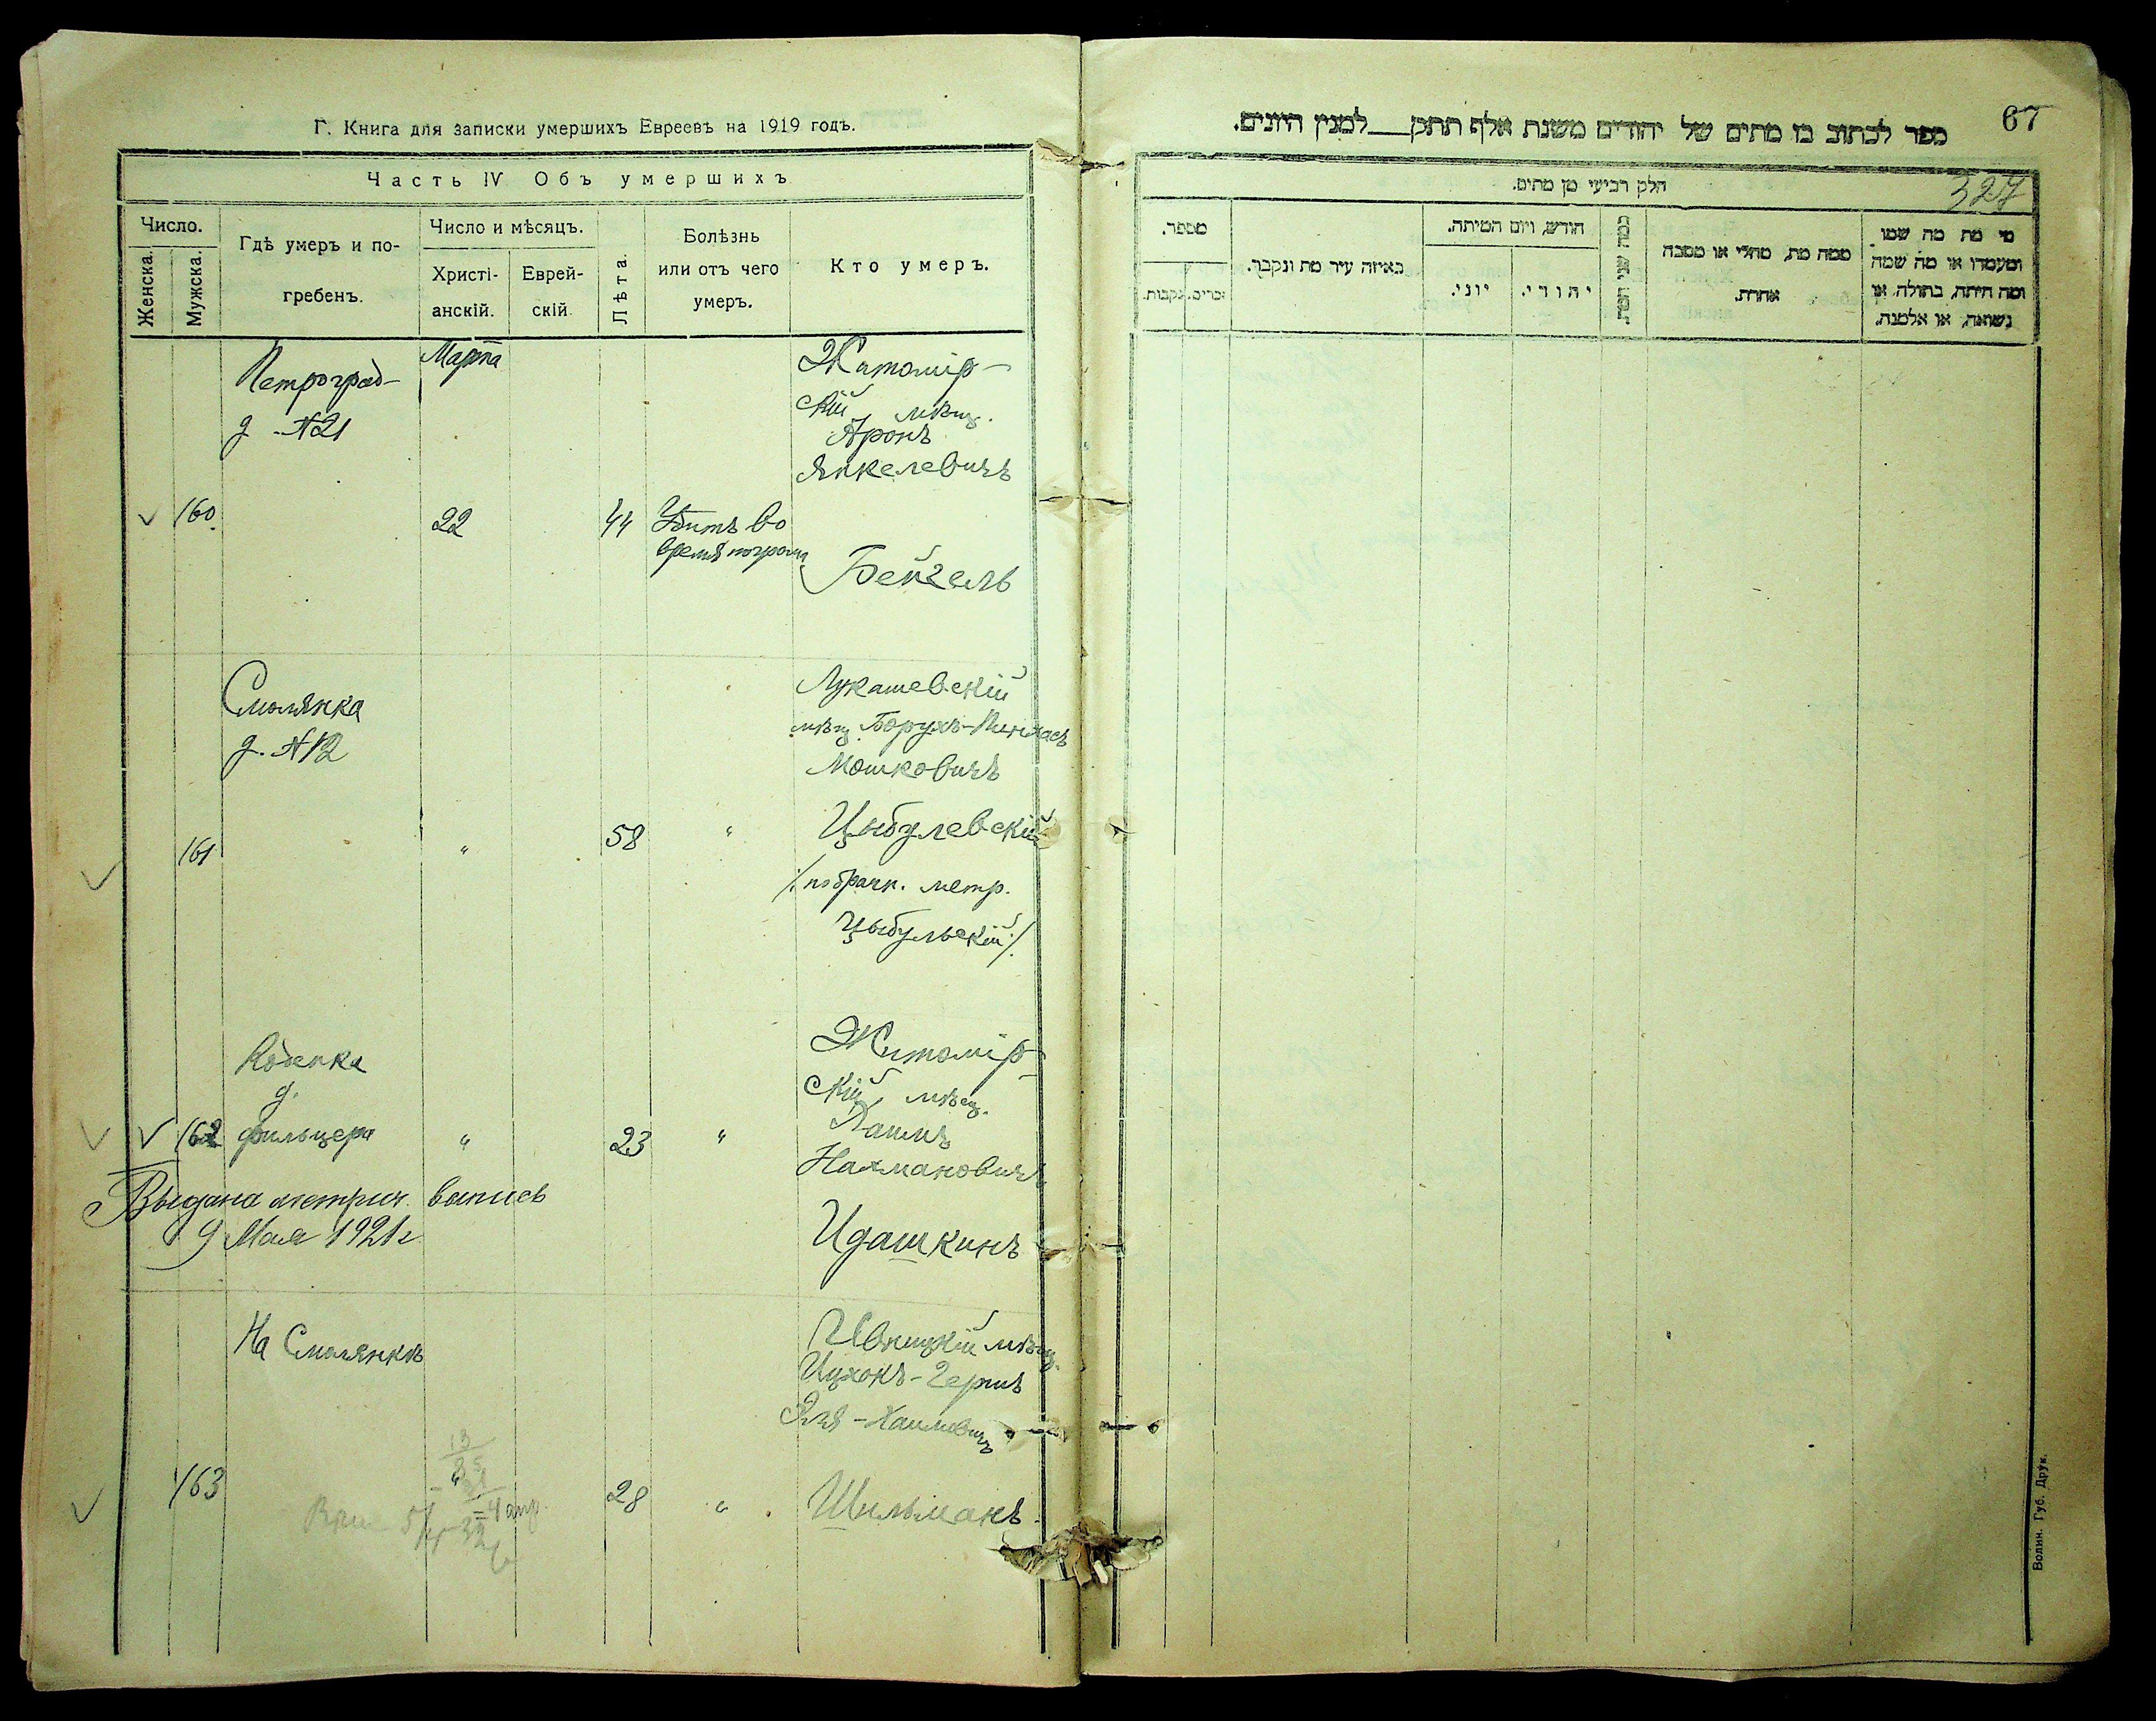 Г. Книга для записки умершихъ Евреевъ на 1919 годъ.
Часть IV Объ умершихъ
Число.
Женска.
Мужска.
Гдѣ умеръ и по-
гребенъ.
Число и мѣсяцъ.
Христі-
анскій.
Еврей-
скій.
Лѣта.
Болѣзнь
или отъ чего
умеръ.
Кто умеръ.
Петроград-
д. №21
Марта
Житомір-
скій мѣщ.
Аронъ
Янкелевичъ
160
22
44
Убитъ во
время погрома
Бейгель
Смолянка
д. №12
Лукашевскій
мѣщ. Борухъ-Пинхасъ
Мошковичъ
161
"
58
"
Цыбулевскій
/:по брачн. метр.
Цыбульскій:/
д.
фильцера
Житомір-
скій мѣщ.
162
"
23
"
Нахмановичъ
Выдана метрич. выпись
9 Мая 1921 г.
Идашкинъ
На Смолянкѣ
Ивницкій мѣщ.
Ицхокъ-Гершъ
-Хаимовичъ
163
28
"
Шильманъ
67
ספר לכתוב בו מתים של יהודים משנת אלף תתק___למנין היונים.
חלק רביעי מן מתים.
327
מספר.
זכרים.
נקבות.
באיזה עיר מת ונקבר.
חודש, ויום המיתה.
יהודי.
יוני.
כמה שני המת.
ממה מת, מחלי או מסבה
אחרת.
מי מת מה שמו
ומעמדו או מה שמה
ומה היתה, בתולה, או
נשואה, או אלמנה.
Волин. Губ. Друк.